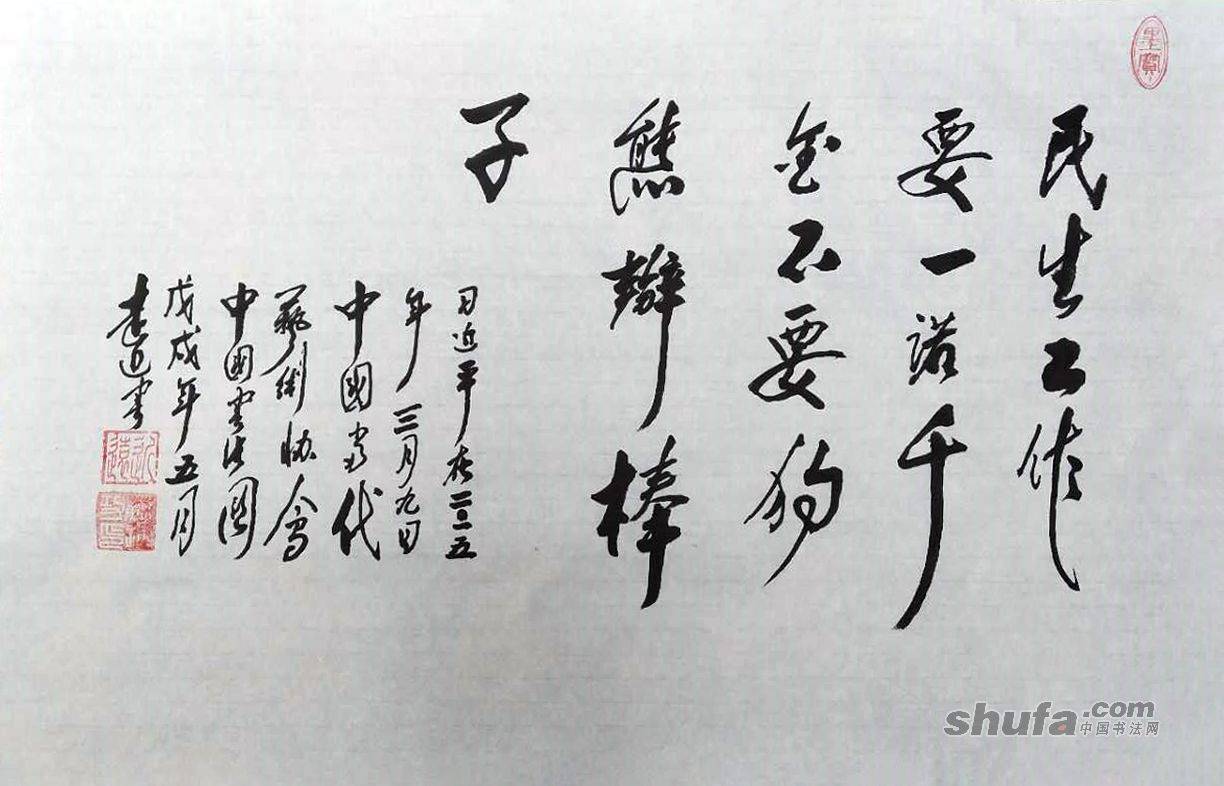 墨寶
民生工作
要一诺千
金不要狗
熊辦棒
子
习近平在二〇一五
年三月九日
中國当代
藝術协會
中國書法
戊戌年五月
書
shufa.com
中国书法网